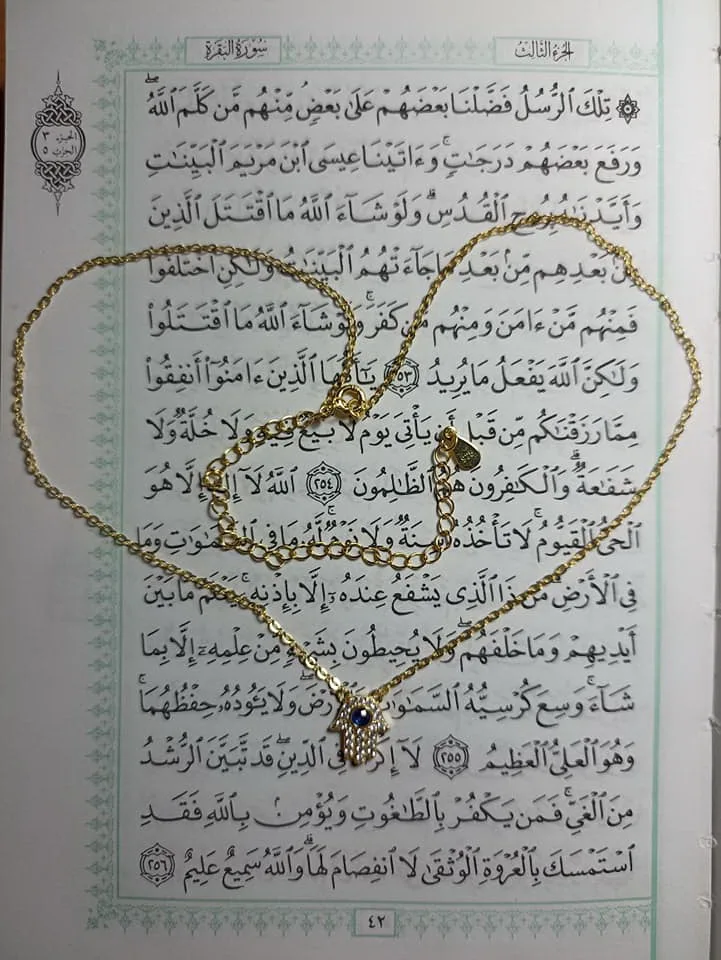 الجزء الثالث
سُورَةُ البَقَرَةِ
الجزء ٣
الحزب ٥
۞ تِلْكَ ٱلرُّسُلُ فَضَّلْنَا بَعْضَهُمْ عَلَىٰ بَعْضٍ مِّنْهُم مَّن كَلَّمَ ٱللَّهُۖ
وَرَفَعَ بَعْضَهُمْ دَرَجَٰتٍۚ وَءَاتَيْنَا عِيسَى ٱبْنَ مَرْيَمَ ٱلْبَيِّنَٰتِ
وَأَيَّدْنَٰهُ بِرُوحِ ٱلْقُدُسِۗ وَلَوْ شَآءَ ٱللَّهُ مَا ٱقْتَتَلَ ٱلَّذِينَ
مِنۢ بَعْدِهِم مِّنۢ بَعْدِ مَا جَآءَتْهُمُ ٱلْبَيِّنَٰتُ وَلَٰكِنِ ٱخْتَلَفُوا۟
فَمِنْهُم مَّنْ ءَامَنَ وَمِنْهُم مَّن كَفَرَۚ وَلَوْ شَآءَ ٱللَّهُ مَا ٱقْتَتَلُوا۟
وَلَٰكِنَّ ٱللَّهَ يَفْعَلُ مَا يُرِيدُ ٢٥٣ يَٰٓأَيُّهَا ٱلَّذِينَ ءَامَنُوٓا۟ أَنفِقُوا۟
مِمَّا رَزَقْنَٰكُم مِّن قَبْلِ أَن يَأْتِىَ يَوْمٌ لَّا بَيْعٌ فِيهِ وَلَا خُلَّةٌ وَلَا
شَفَٰعَةٌۗ وَٱلْكَٰفِرُونَ هُمُ ٱلظَّٰلِمُونَ ٢٥٤ ٱللَّهُ لَآ إِلَٰهَ إِلَّا هُوَ
ٱلْحَىُّ ٱلْقَيُّومُۚ لَا تَأْخُذُهُۥ سِنَةٌ وَلَا نَوْمٌۚ لَّهُۥ مَا فِى ٱلسَّمَٰوَٰتِ وَمَا
فِى ٱلْأَرْضِۗ مَن ذَا ٱلَّذِى يَشْفَعُ عِندَهُۥٓ إِلَّا بِإِذْنِهِۦۚ يَعْلَمُ مَا بَيْنَ
أَيْدِيهِمْ وَمَا خَلْفَهُمْۖ وَلَا يُحِيطُونَ بِشَىْءٍ مِّنْ عِلْمِهِۦٓ إِلَّا بِمَا
شَآءَۚ وَسِعَ كُرْسِيُّهُ ٱلسَّمَٰوَٰتِ وَٱلْأَرْضَۖ وَلَا يَـُٔودُهُۥ حِفْظُهُمَاۚ
وَهُوَ ٱلْعَلِىُّ ٱلْعَظِيمُ ٢٥٥ لَآ فِى ٱلدِّينِۖ قَد تَّبَيَّنَ ٱلرُّشْدُ
مِنَ ٱلْغَىِّۚ فَمَن يَكْفُرْ بِٱلطَّٰغُوتِ وَيُؤْمِنۢ بِٱللَّهِ فَقَدِ
ٱسْتَمْسَكَ بِٱلْعُرْوَةِ ٱلْوُثْقَىٰ لَا ٱنفِصَامَ لَهَاۗ وَٱللَّهُ سَمِيعٌ عَلِيمٌ ٢٥٦
٤٢